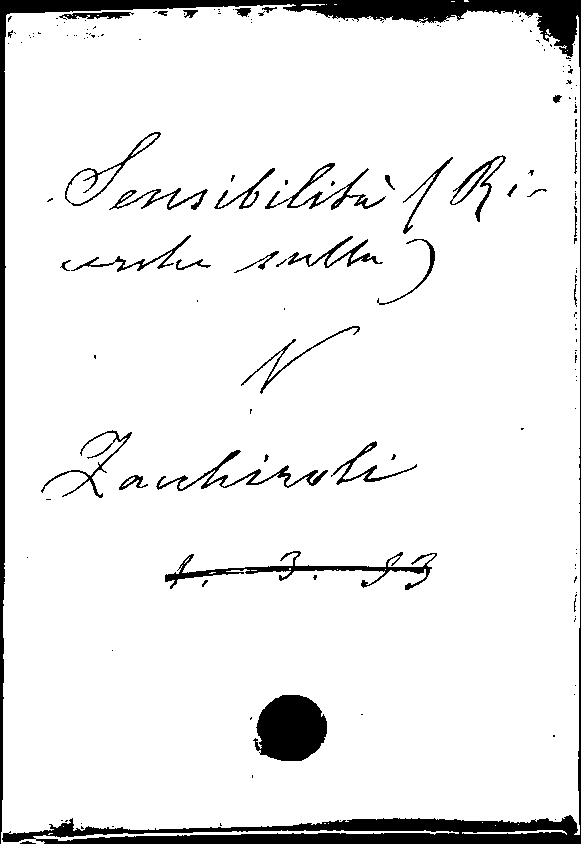 Sensibilità (Ri-
cerche sulla)
V
Zacchiroli
1. 3. 93